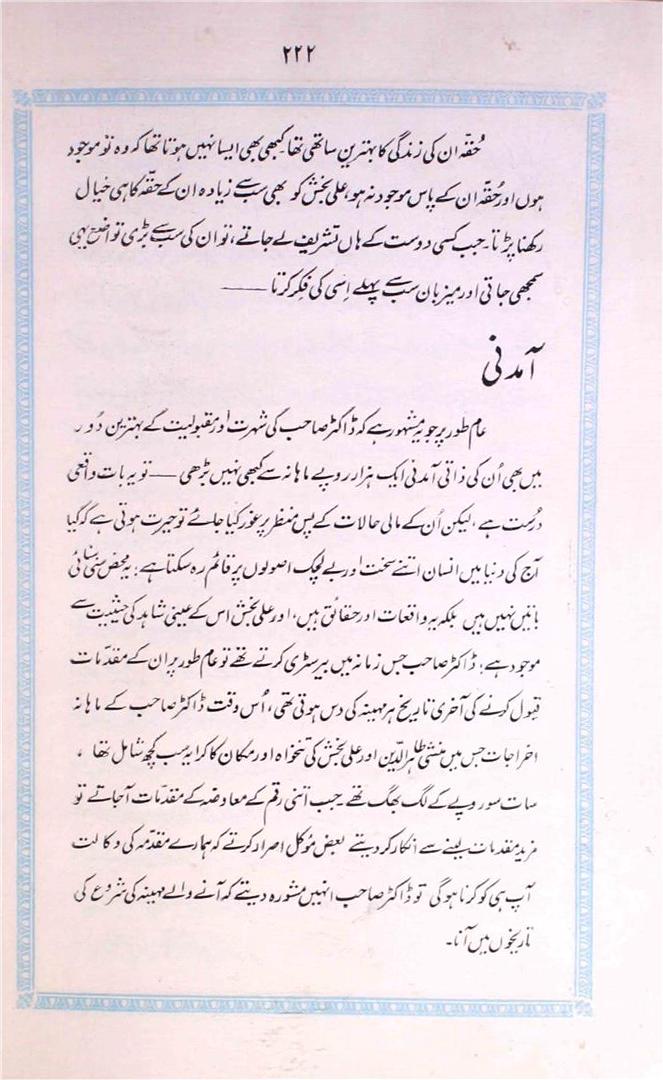 ۲۲۲
حُقّہ ان کی زندگی کا بہترین ساتھی تھا کبھی بھی ایسا نہیں ہوتا تھا کہ وہ تو موجود
ہوں اور حُقّہ ان کے پاس موجود نہ ہو، علی بخش کو بھی سب سے زیادہ ان کے حقّہ کا ہی خیال
رکھنا پڑتا۔ جب کسی دوست کے ہاں تشریف لے جاتے، تو ان کی سب سے بڑی تواضع یہی
سمجھی جاتی اور میزبان سب سے پہلے اِسی کی فکر کرتا ——
آمدنی
عام طور پر جو یہ مشہور ہے کہ ڈاکٹر صاحب کی شہرت اور مقبولیت کے بہترین دَور
میں بھی اُن کی ذاتی آمدنی ایک ہزار روپے ماہانہ سے کبھی نہیں بڑھی —— تو یہ بات واقعی
درست ہے، لیکن اُن کے مالی حالات کے پس منظر پر غور کیا جائے تو حیرت ہوتی ہے کہ کیا
آج کی دنیا میں انسان اتنے سخت اور بے لچک اصولوں پر قائم رہ سکتا ہے؛ یہ محض سُنی سنائی
باتیں نہیں ہیں بلکہ یہ واقعات اور حقائق ہیں، اور علی بخش اس کے عینی شاہد کی حیثیت سے
موجود ہے؛ ڈاکٹر صاحب جس زمانہ میں بیرسٹری کرتے تھے تو عام طور پر ان کے مقدمات
قبول کرنے کی آخری تاریخ ہر مہینہ کی دس ہوتی تھی، اُس وقت ڈاکٹر صاحب کے ماہانہ
اخراجات جس میں منشی طاہر الدّین اور علی بخش کی تنخواہ اور مکان کا کرایہ سب کچھ شامل تھا ،
سات سو روپے کے لگ بھگ تھے۔ جب اتنی رقم کے معاوضہ کے مقدمات آجاتے تو
مزید مقدمات لینے سے انکار کر دیتے بعض مُوکل اصرار کرتے کہ ہمارے مقدّمہ کی وکالت
آپ ہی کو کرنا ہوگی تو ڈاکٹر صاحب انہیں مشورہ دیتے کہ آنے والے مہینہ کی شروع کی
تاریخوں میں آنا۔